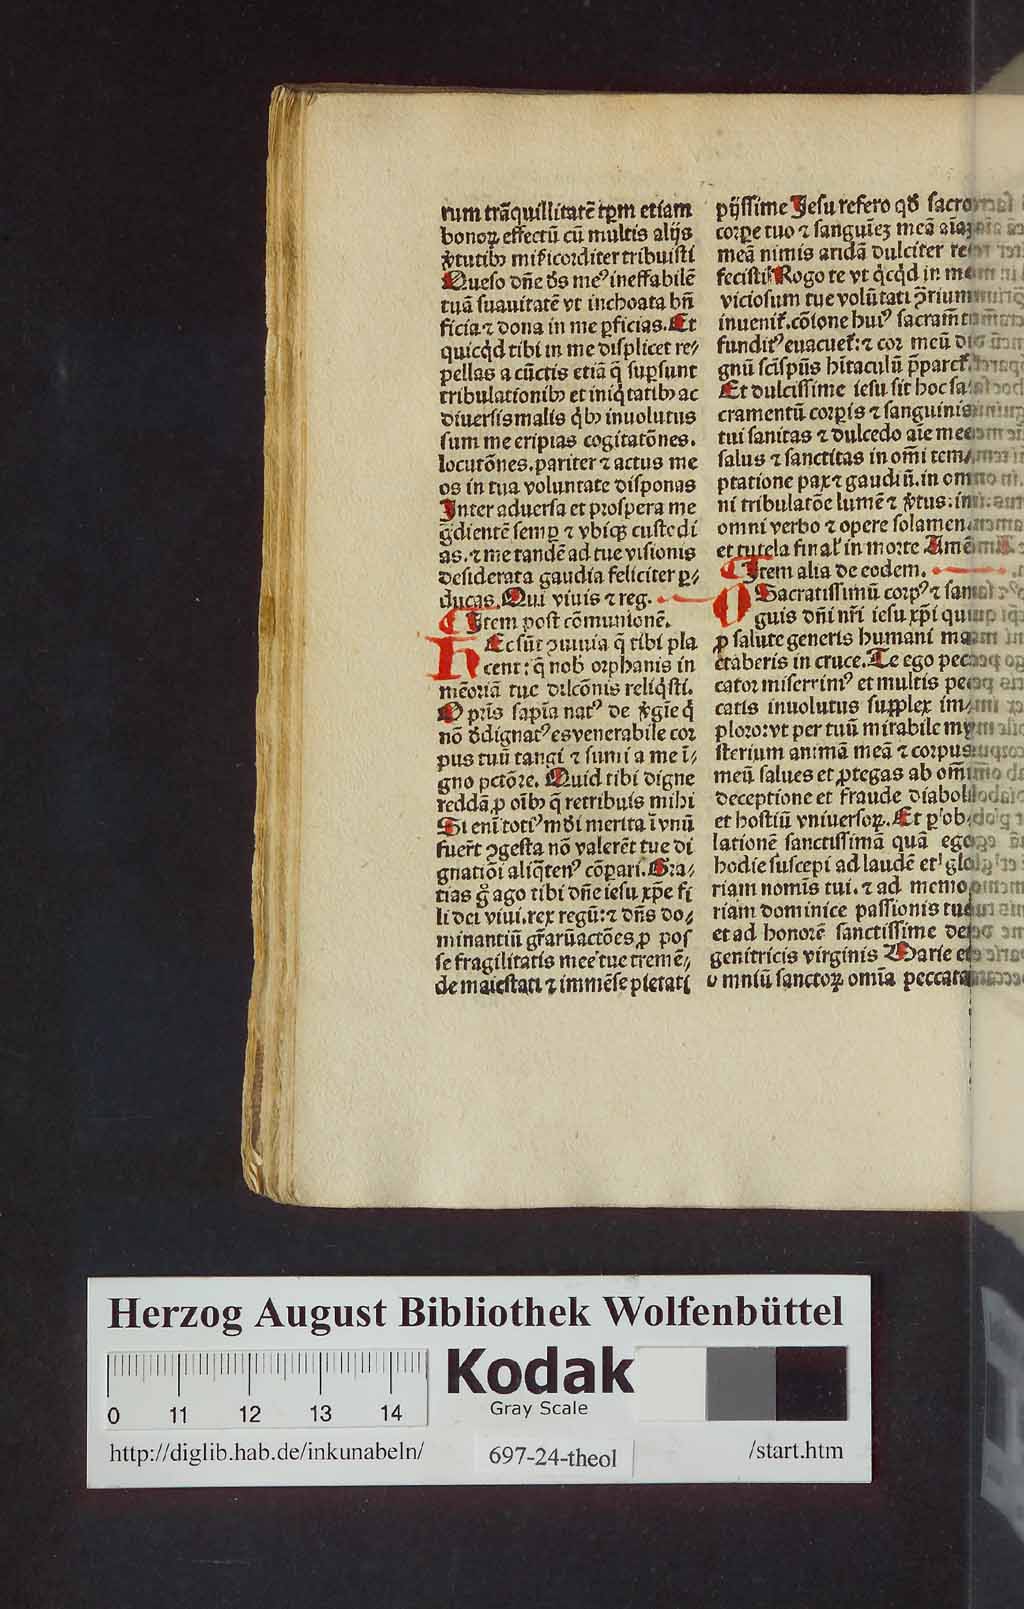 rum trāquillitatē tꝑm etiam
bonoꝝ effectū cū multis alijs
v̾tutibꝰ miẜicorditer tribuisti
Queso dn̄e d̕s meꝰ ineffabilē
tuā suauitatē vt inchoata bn̄
ficia ⁊ dona in me ꝑficias. Et
quicq̇d tibi in me displicet re⸗
pellas a cūctis etiā q̄ suꝑsunt
tribulationibꝫ et iniq̇tatibꝫ ac
diuersis malis q̇bꝫ inuolutus
sum me eripias cogitatōnes.
locutōnes. pariter ⁊ actus me
os in tua voluntate disponas
Inter aduersa et prospera me
g̈dientē semꝑ ⁊ vbiqꝫ custodi
as. ⁊ me tandē ad tue visionis
desiderata gaudia feliciter ꝑ⸗
ducas. Qui viuis ⁊ reg.
Item post cōmunionē.
HEc sūt ꝯuiuia q̄ tibi pla
cent: q̄ nob̄ orphanis in
mēoriā tue dilcōnis reliq̇sti.
O pr̄is sapīa natꝰ de v̾gīe q̇
nō d̕dignatꝰ es venerabile cor
pus tuū tangi ⁊ sumi a me ī⸗
gno pctōre. Quid tibi digne
reddā ꝓ oībꝫ q̄ retribuis mihi
Si enī totiꝰ mūdi merita ī vnū
fuer̄t ꝯgesta nō valerēt tue di
gnatiōi aliq̄tenꝰ cōpari. Gra⸗
tias gͦ ago tibi dn̄e iesu xp̄e fi
li dei viui. rex regū: ⁊ dn̄s do⸗
minantiū gr̄arū actōes ꝓ pos
se fragilitatis mee tue tremē⸗
de maiestati ⁊ immēse pietati
pijssime Jesu refero qd̕ sacro
corꝑe tuo ⁊ sanguīeꝫ meā aīaꝫ
meā nimis aridā dulciter re
fecisti. Rogo te vt q̇cq̇d in me
viciosum tue volūtati ꝯ̄trium
inuenit᷑. cōione huiꝰ sacram̄ti
funditꝰ euacuet᷑: ⁊ cor meū di
gnū sc̄ispūs hītaculū p̄paret᷑.
Et dulcissime iesu sit hoc sa
cramentū corꝑis ⁊ sanguinis
tui sanitas ⁊ dulcedo aīe mee
salus ⁊ sanctitas in om̄i tem⸗
ptatione pax ⁊ gaudiū. in om
ni tribulatōe lumē ⁊ v̾tus: in
omni verbo ⁊ opere solamen
et tutela final̕ in morte Amē
Item alia de eodem.
O Sacratissimū corpꝰ ⁊ san
guis dn̄i nr̄i iesu xp̄i qui
ꝓ salute generis humani ma
ctaberis in cruce. Te ego pec
cator miserrimꝰ et multis pec
catis inuolutus supplex im⸗
ploro: vt per tuū mirabile my
sterium animā meā ⁊ corpus
meū salues et ꝓtegas ab om̄i
deceptione et fraude diaboli
et hostiū vniuersoꝝ. Et ꝑ ob
lationē sanctissimā quā ego
hodie suscepi ad laudē et glo
riam nomīs tui. ⁊ ad memo
riam dominice passionis tue
et ad honorē sanctissime dei
genitricis virginis Marie et
omniū sanctoꝝ omīa peccata
Herzog August Bibliothek Wolfenbüttel
Kodak
Gray Scale
0 11 12 13 14
http://diglib.hab.de/inkunabeln/ 697-24-theol /start.htm